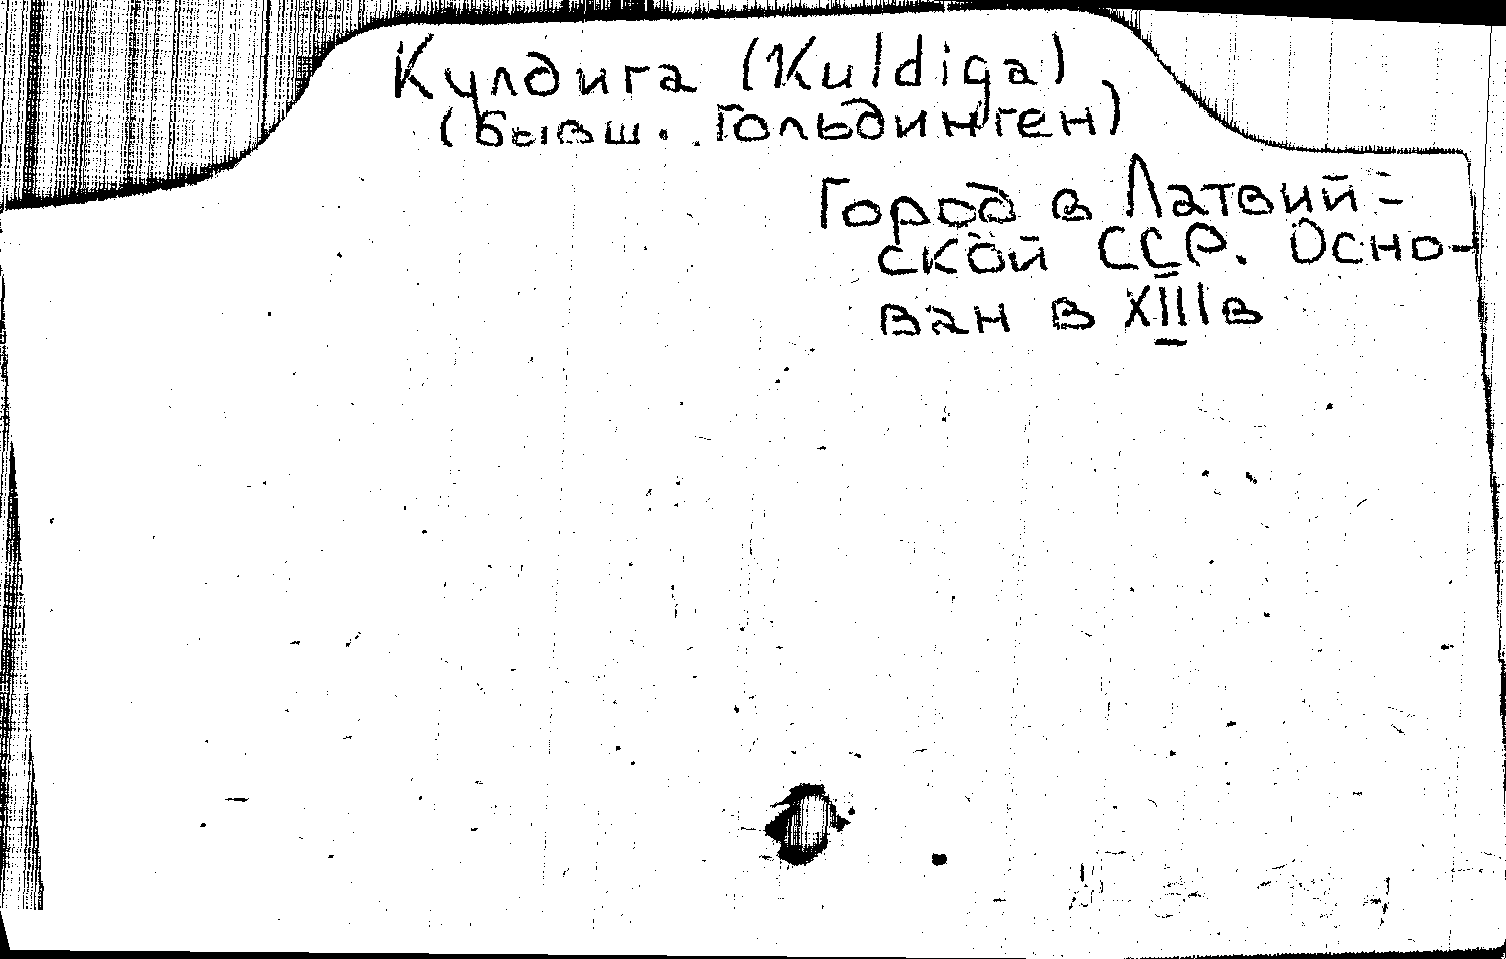 Кулдига (Kuldiga)
(бывш. Гольдинген)
Город в Латвий-
ской ССР. Осно-
ван в XIII в